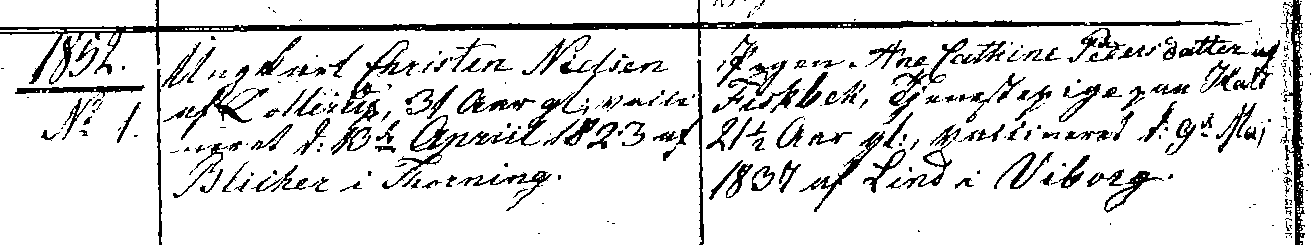 1852.
Nº 1.
Ungkarl Christen Nielsen
af Lollerup, 31 Aar gl:, vacci
neret d: 13de April 1823 af
Blicher i Thorning.
Pigen Ane Cathrine Pedersdatter af
Fiskbek, Tjenestepige paa Hald
21½ Aar gl:, vaccineret d: 9de Maj
1837 af Lind i Viborg.